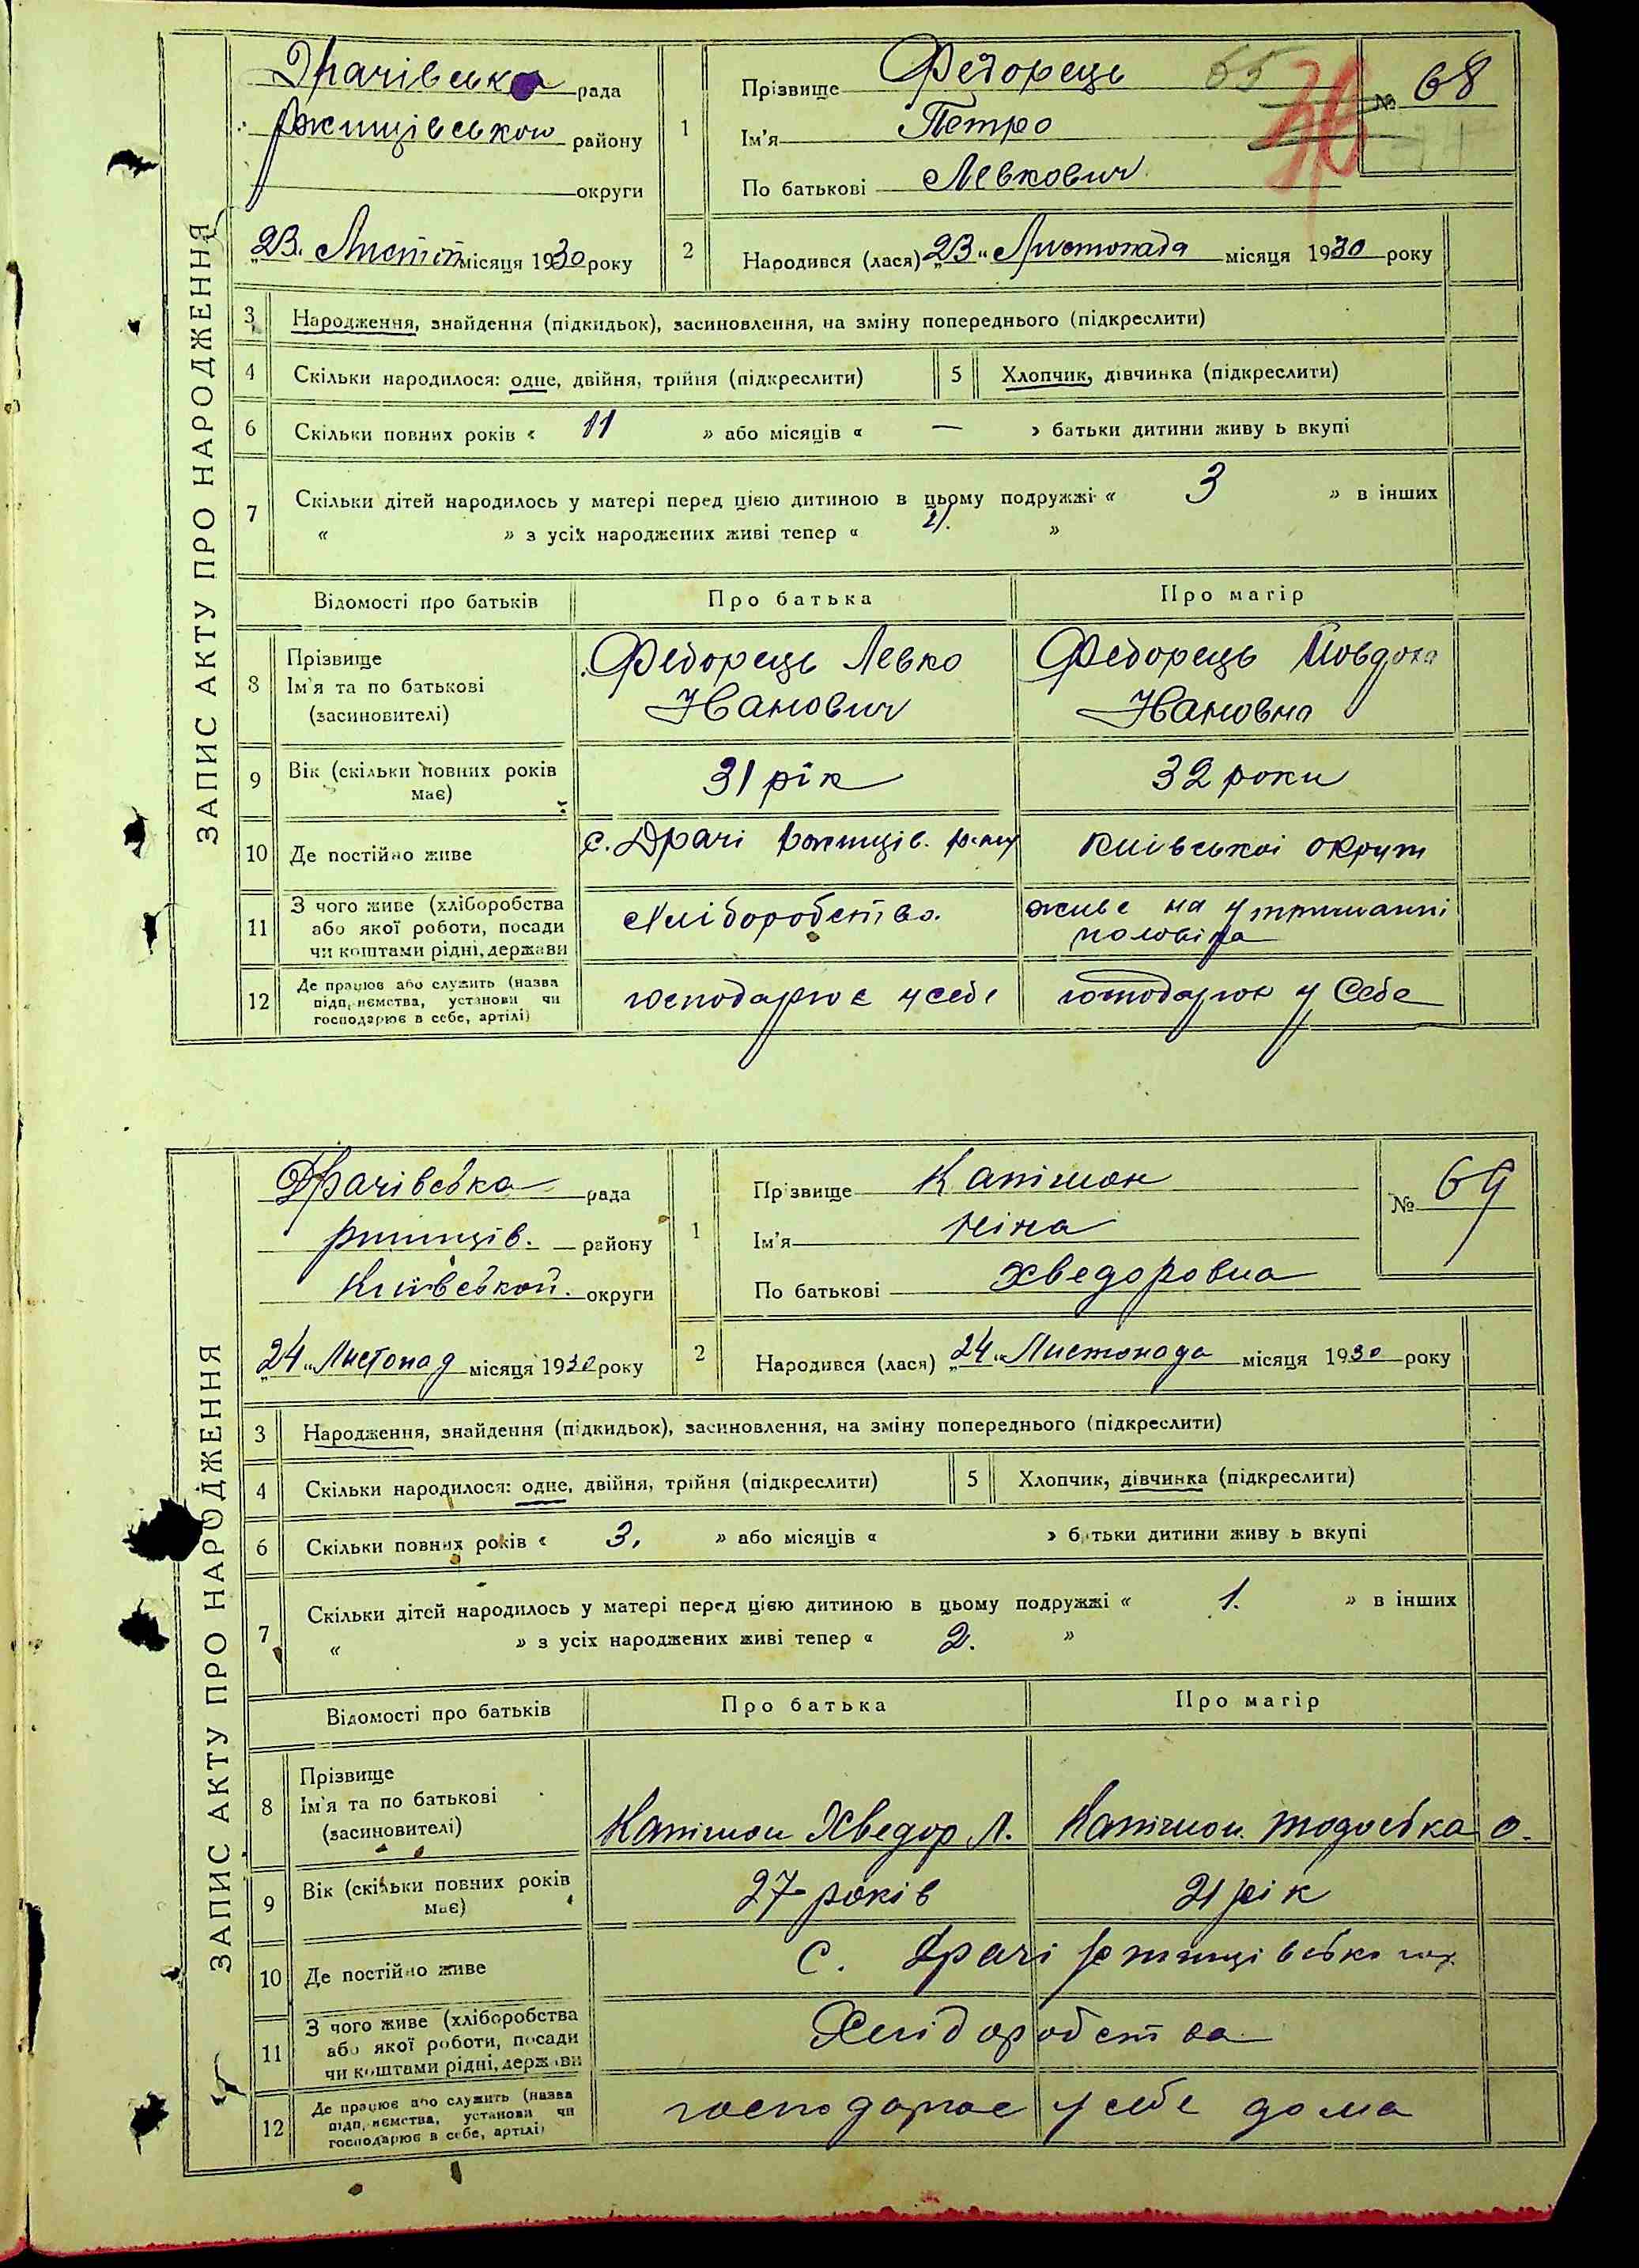 ЗАПИС АКТУ ПРО НАРОДЖЕННЯ
Драчівська рада
Ржищівської району
округи
„23. Листоп місяця 1930 року
1
Прізвище Федорець
Ім'я Петро
По батькові Левкович
№ 68
65
2
Народився (лася) „23" Листопада місяця 1930 року
3
Народження, знайдення (підкидьок), засиновлення, на зміну попереднього (підкреслити)
4
Скільки народилося: одне, двійня, трійня (підкреслити)
5
Хлопчик, дівчинка (підкреслити)
6
Скільки повних років « 11 » або місяців « — » батьки дитини живу ь вкупі
7
Скільки дітей народилось у матері перед цією дитиною в цьому подружжі « 3 » в інших
« » з усіх народжених живі тепер « »
Відомості про батьків
Про батька
Про матір
8
Прізвище
Ім'я та по батькові
(засиновителі)
Федорець Левко
Іванович
Федорець Йовдоха
Івановна
9
Вік (скільки повних років
має)
31 рік
32 роки
10
Де постійно живе
с. Драчі Ржищів. р-ну
Київської округи
11
З чого живе (хліборобства
або якої роботи, посади
чи коштами рідні, держави
Хліборобство.
живе на утриманні
чоловіка
12
Де працює або служить (назва
підприємства, установи чи
господарює в себе, артілі)
господарює у себе
господарює у себе
ЗАПИС АКТУ ПРО НАРОДЖЕННЯ
Драчівська рада
Ржищів. району
Київської. округи
„24" Листопад місяця 1930 року
1
Прізвище Капішон
Ім'я Ніна
По батькові Хведоровна
№ 69
2
Народився (лася) „24" Листопада місяця 1930 року
3
Народження, знайдення (підкидьок), засиновлення, на зміну попереднього (підкреслити)
4
Скільки народилося: одне, двійня, трійня (підкреслити)
5
Хлопчик, дівчинка (підкреслити)
6
Скільки повних років « 3. » або місяців « » батьки дитини живу ь вкупі
7
Скільки дітей народилось у матері перед цією дитиною в цьому подружжі « 1. » в інших
« » з усіх народжених живі тепер « 2. »
Відомості про батьків
Про батька
Про матір
8
Прізвище
Ім'я та по батькові
(засиновителі)
Капішон Хведор Л.
Капішон. Тодоська О.
9
Вік (скільки повних років
має)
27 років
21 рік
10
Де постійно живе
С. Драчі Ржищівсько
11
З чого живе (хліборобства
або якої роботи, посади
чи коштами рідні, держави
Хліборобства
12
Де працює або служить (назва
підприємства, установи чи
господарює в себе, артілі)
господарює у себе дома